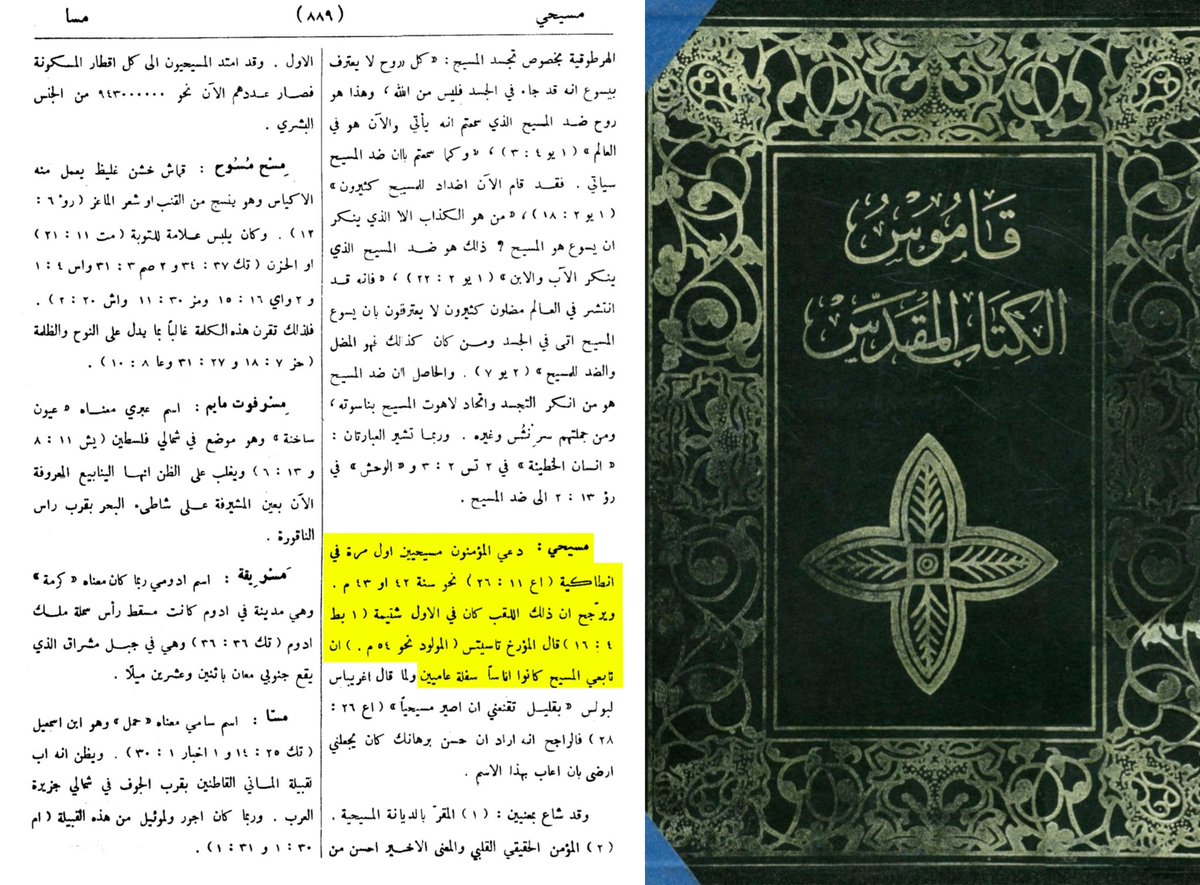 مسيحي
(٨٨٩)
مسا
الهرطوقية بخصوص تجسد المسيح : « كل روح لا يعترف
بيسوع انه قد جاء في الجسد فليس من الله ، وهذا هو
روح ضد المسيح الذي سمعتم انه يأتي والآن هو في
العالم » ( ١ يو ٤ : ٣ ) ، « وكما سمعتم بان ضد المسيح
سياتي . فقد قام الآن اضداد للمسيح كثيرون »
( ١ يو ٢ : ١٨ ) ، « من هو الكذاب الا الذي ينكر
ان يسوع هو المسيح ؟ ذلك هو ضد المسيح الذي
ينكر الآب والابن » ( ١ يو ٢ : ٢٢ ) ، « فانه قد
انتشر في العالم مضلون كثيرون لا يعترفون بان يسوع
المسيح اتى في الجسد ومن كان كذلك فهو المضل
والضد للمسيح » ( ٢ يو ٧ ) . والحاصل ان ضد المسيح
هو من انكر التجسد واتحاد لاهوت المسيح بناسوته ،
ومن جملتهم سرنثس وغيره . وربما تشير العبارتان :
« انسان الخطيئة » في ٢ تس ٢ : ٣ و « الوحش » في
رؤ ١٣ : ٢ الى ضد المسيح .
مسيحي : دعي المؤمنون مسيحيين اول مرة في
انطاكية ( اع ١١ : ٢٦ ) نحو سنة ٤٢ او ٤٣ م .
ويرجّح ان ذلك اللقب كان في الاول شتيمة ( ١ بط
٤ : ١٦ ) قال المؤرخ تاسيتس ( المولود نحو ٥٤ م . ) ان
تابعي المسيح كانوا اناساً سفلة عاميين ولما قال اغريباس
لبولس « بقليل تقنعني ان اصير مسيحياً » ( اع ٢٦ :
٢٨ ) فالراجح انه اراد ان حسن برهانك كان يجعلني
ارضى بان اعاب بهذا الاسم .
وقد شاع بمعنيين : ( ١ ) المقرّ بالديانة المسيحية .
( ٢ ) المؤمن الحقيقي القلبي والمعنى الاخير احسن من
الاول . وقد امتد المسيحيون الى كل اقطار المسكونة
فصار عددهم الآن نحو ٩٤٣٠٠٠٠٠٠ من الجنس
البشري .
مِسْح مُسُوح : قماش خشن غليظ يعمل منه
الاكياس وهو ينسج من القنب او شعر الماعز ( رؤ ٦ :
١٢ ) . وكان يلبس علامة للتوبة ( مت ١١ : ٢١ )
او الحزن ( تك ٣٧ : ٣٤ و ٢ صم ٣ : ٣١ واس ٤ : ١
و ٢ واي ١٦ : ١٥ ومز ٣٠ : ١١ واش ٢٠ : ٢ ) .
فلذلك تقرن هذه الكلمة غالباً بما يدل على النوح والظلمة
( حز ٧ : ١٨ و ٢٧ : ٣١ وعا ٨ : ١٠ ) .
مِسرفوت مايم : اسم عبري معناه « عيون
ساخنة » وهو موضع في شمالي فلسطين ( يش ١١ : ٨
و ١٣ : ٦ ) ويغلب على الظن انها الينابيع المعروفة
الآن بعين المشيرفة على شاطىء البحر بقرب راس
الناقورة .
مَسْرِيقة : اسم ادومي ربما كان معناه « كرمة »
وهي مدينة في ادوم كانت مسقط رأس سملة ملك
ادوم ( تك ٣٦ : ٣٦ ) وهي في جبل مشراق الذي
يقع جنوبي معان باثنين وعشرين ميلًا .
مسّا : اسم سامي معناه « حمل » وهو ابن اسمعيل
( تك ٢٥ : ١٤ و ١ اخبار ١ : ٣٠ ) . ويظن انه اب
لقبيلة المساني القاطنين بقرب الجوف في شمالي جزيرة
العرب . وربما كان اجور ولموئيل من هذه القبيلة ( ام
٣٠ : ١ و ٣١ : ١ ) .
قَامُوسُ
الكِتَابِ المُقَدَّسِ